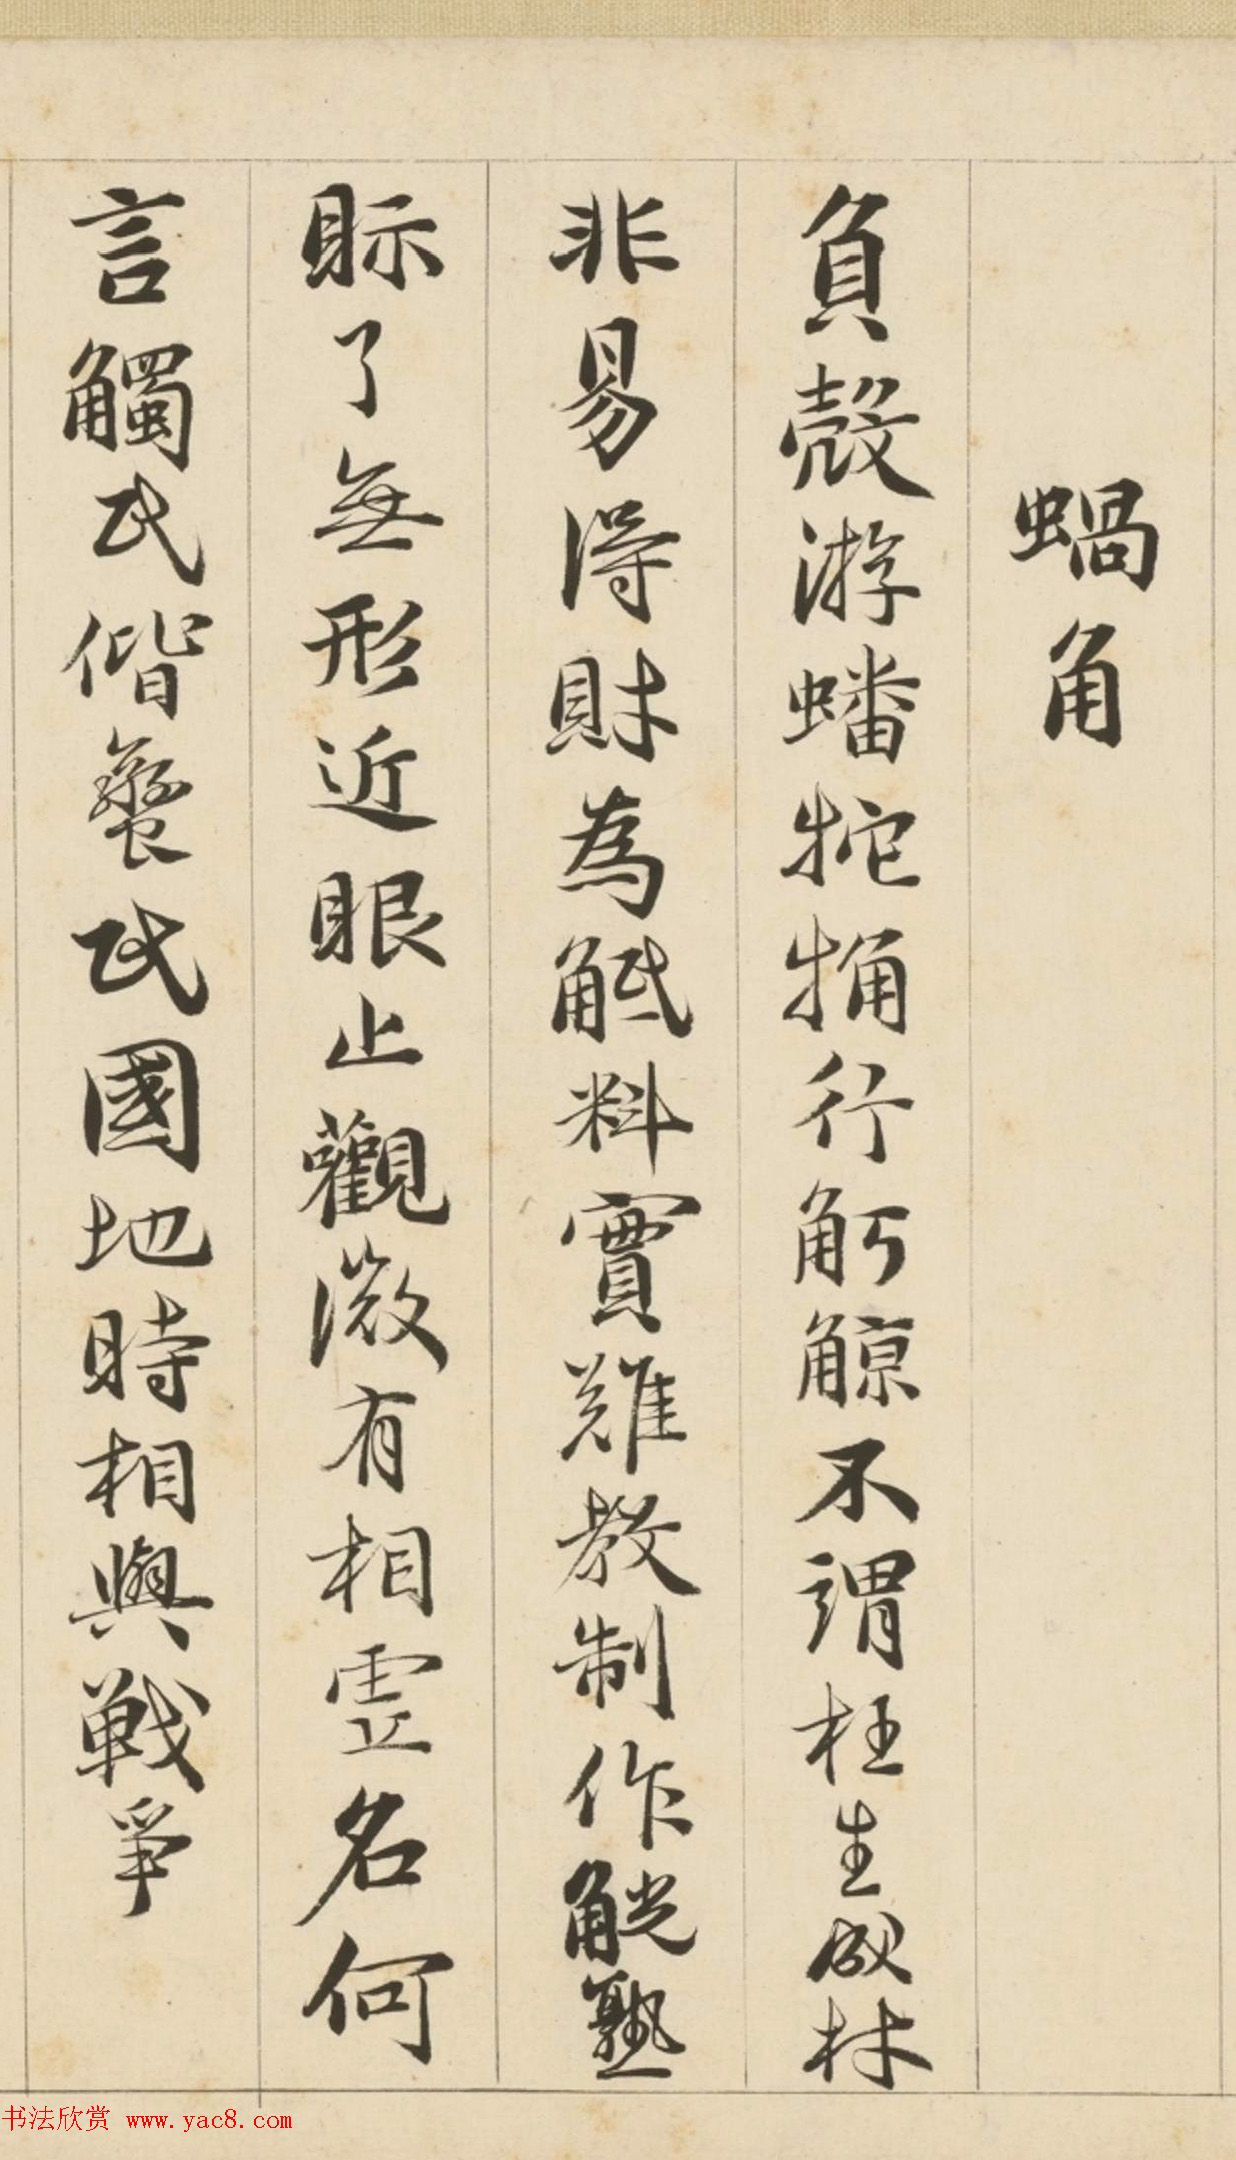 蝸角
負殼游蟠牠觕行不謂枉生成材
非易得財為觝料實難教制作觥熟
眎了無形近眼止觀微有相名何
言觸氏偕蠻氏國地時相與戰爭
书法欣赏 www.yac8.com